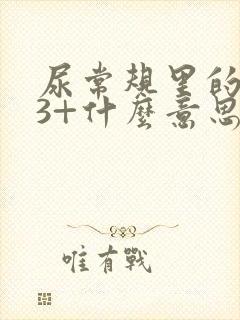 尿常规里的
3+什麼意思
唯有戰